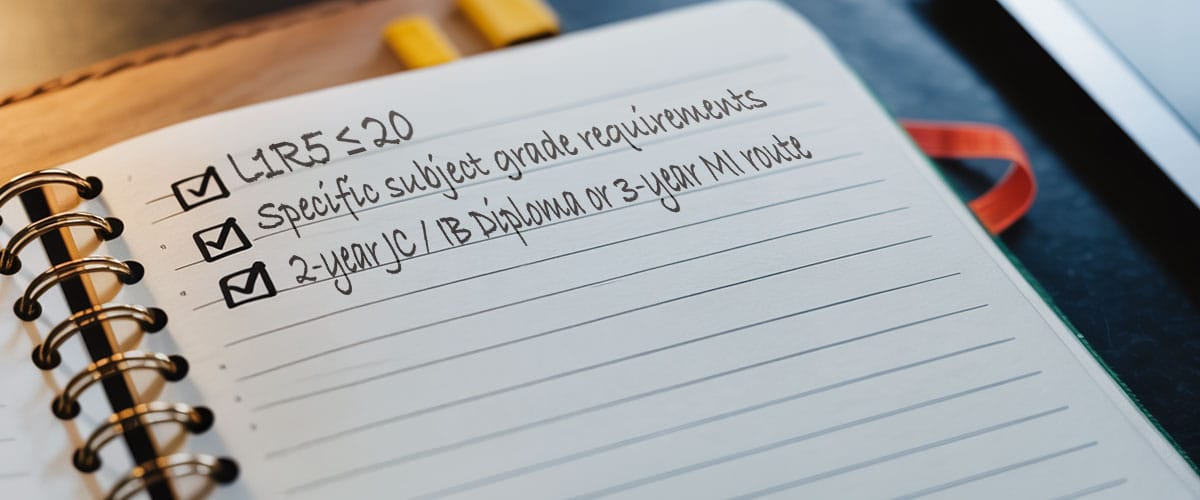 L1R5 ≤ 20
Specific subject grade requirements
2-year JC / IB Diploma or 3-year MI route